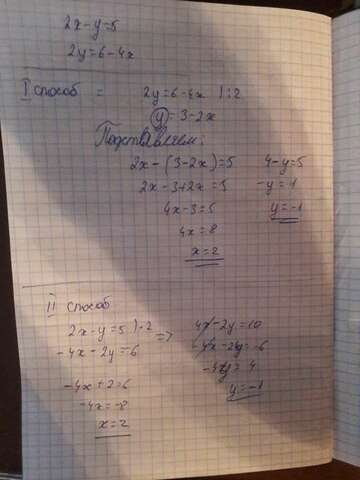 2x-y=5
2y=6-4x
I способ = 2y=6-4x |:2
y=3-2x
Подставляем:
2x-(3-2x)=5 4-y=5
2x-3+2x=5 -y=1
4x-3=5 y=-1
4x=8
x=2
II способ
2x-y=5 |·2 => 4x-2y=10
-4x-2y=-6 -4x-2y=-6
-4y=4
-4x+2=-6 y=-1
-4x=-8
x=2